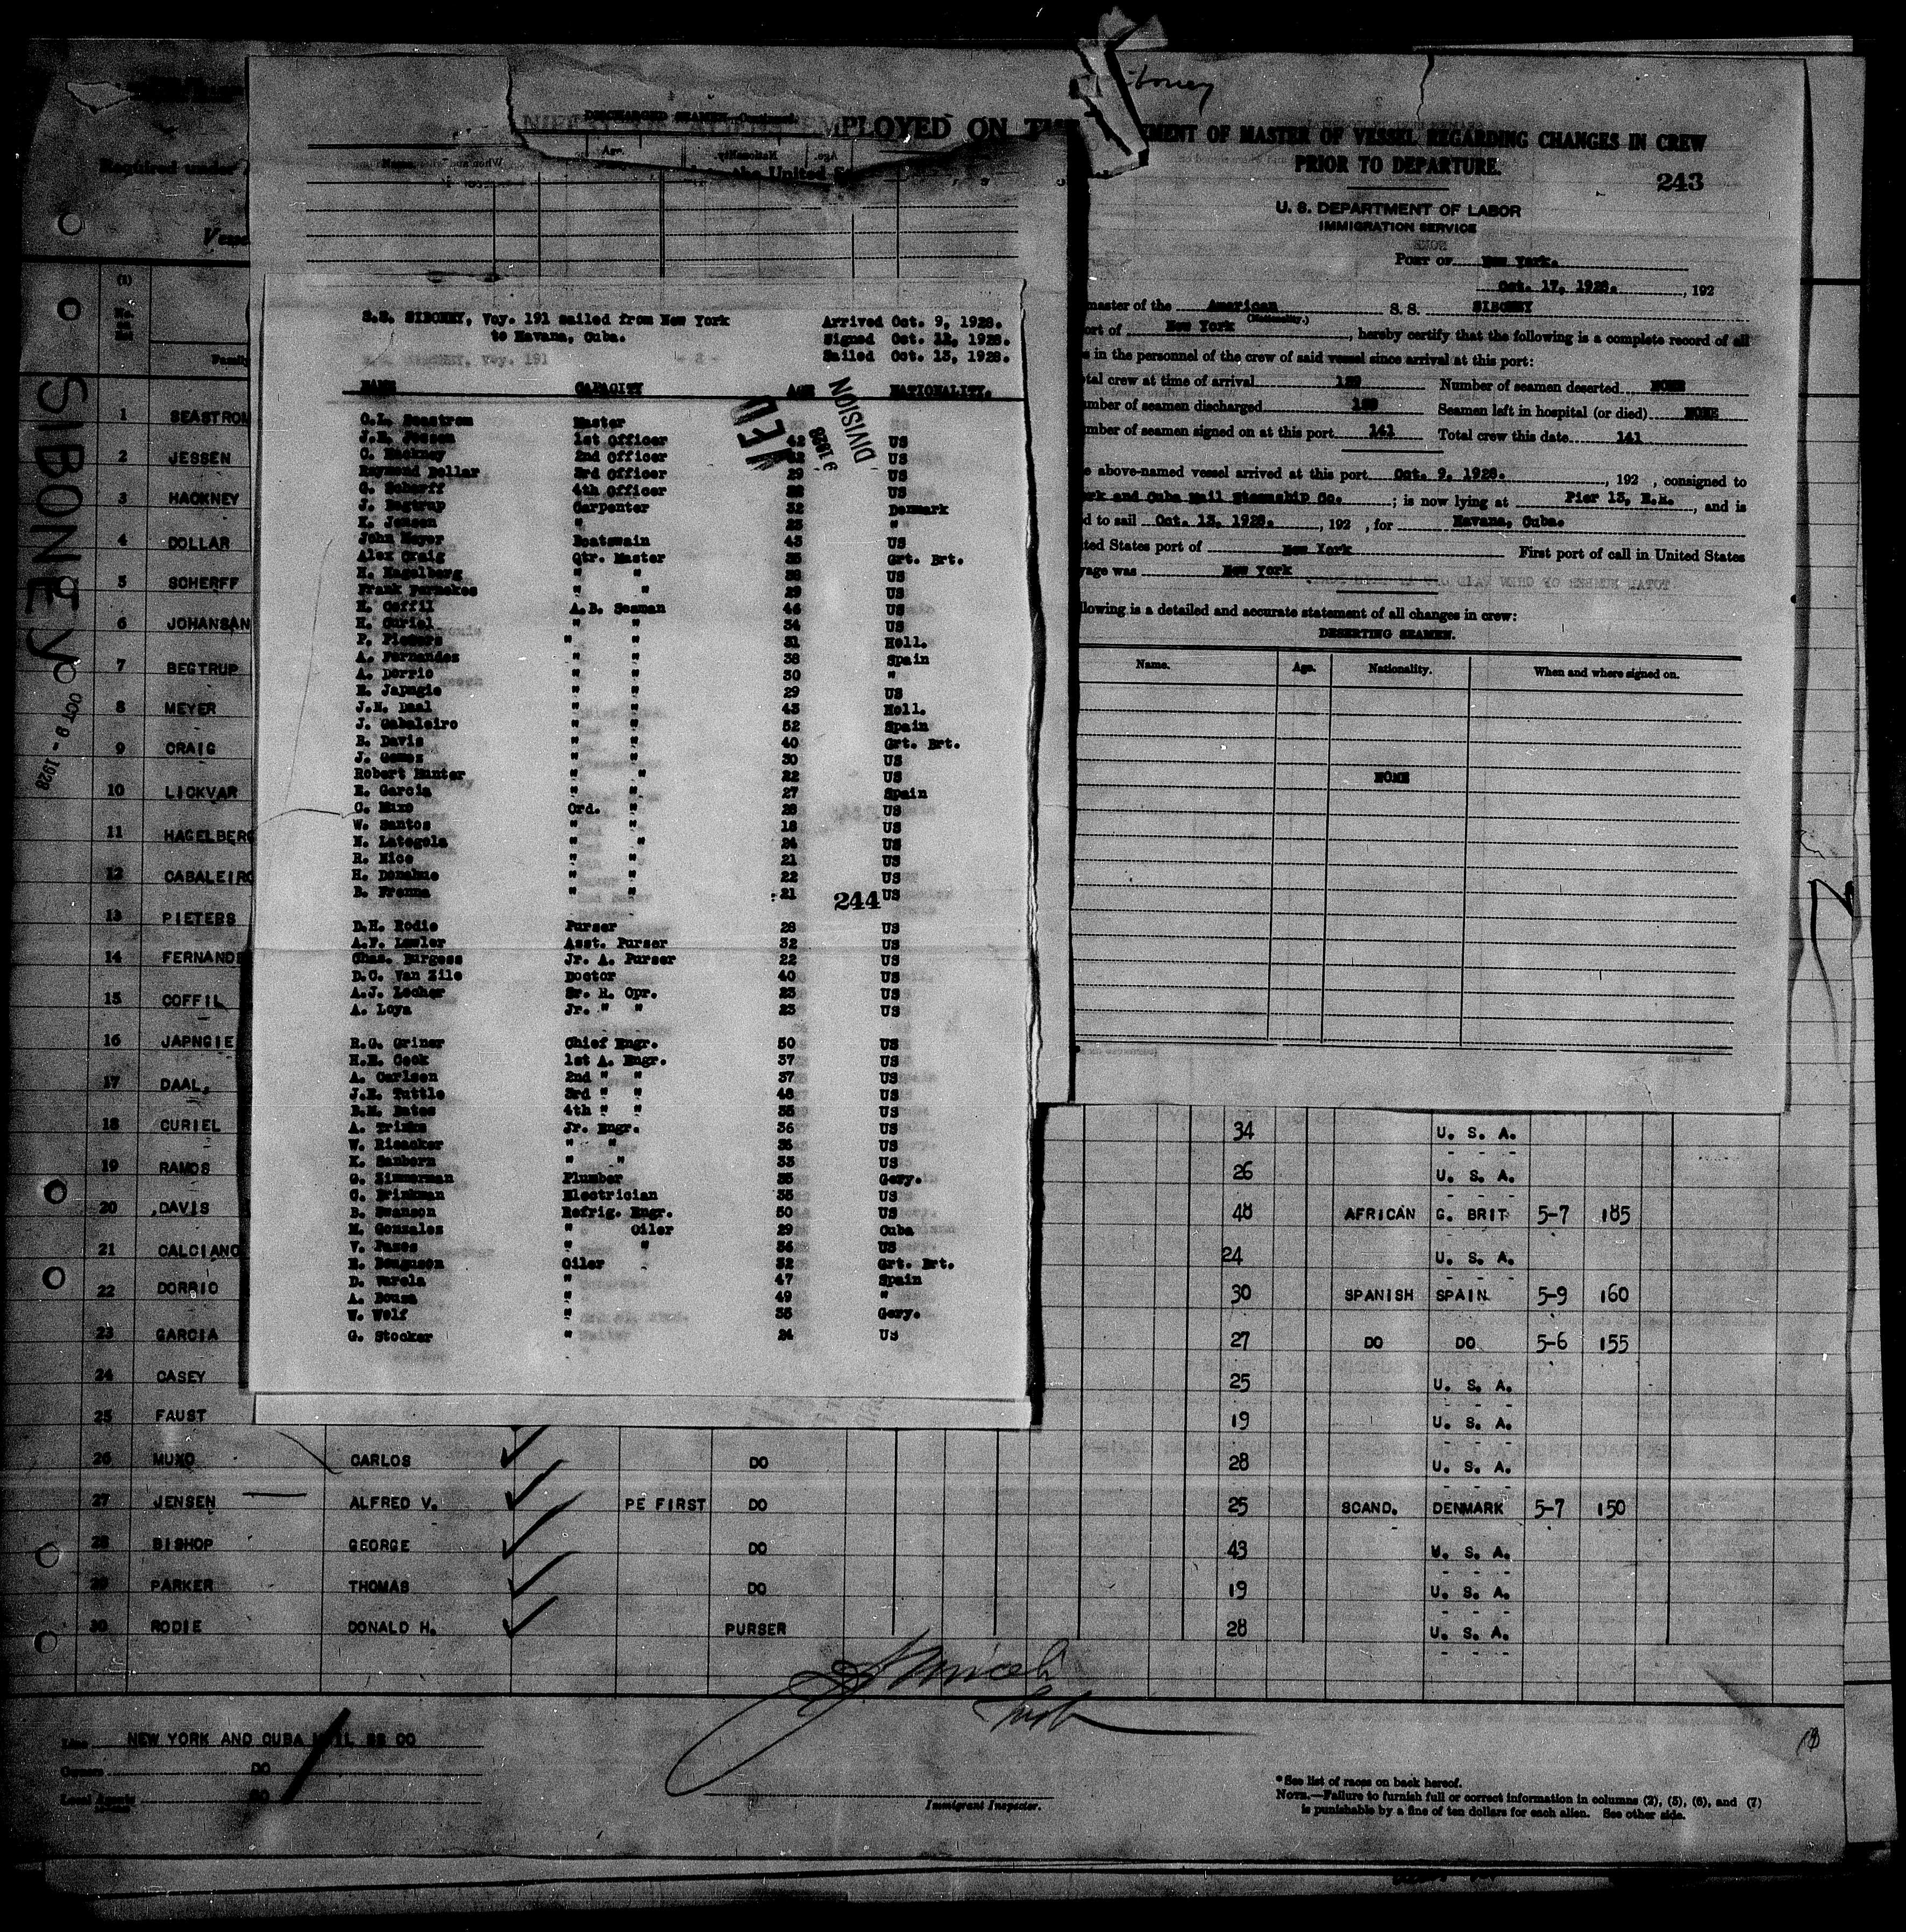 DISCHARGED SEAMEN—Continued.
PLOYED ON THE
Required under
243
MENT OF MASTER OF VESSEL REGARDING CHANGES IN CREW
PRIOR TO DEPARTURE.
U. S. DEPARTMENT OF LABOR
IMMIGRATION SERVICE
PORT OF New York.
Oct. 17, 1928. , 192
master of the American S. S. SIBONEY
(Nationality.)
ort of New York , hereby certify that the following is a complete record of all
s in the personnel of the crew of said vessel since arrival at this port:
tal crew at time of arrival Number of seamen deserted NONE
mber of seamen discharged Seamen left in hospital (or died) NONE
mber of seamen signed on at this port 141 Total crew this date 141
e above-named vessel arrived at this port Oct. 9, 1928. , 192 , consigned to
rk and Cuba Mail Steamship Co. ; is now lying at Pier 13, E.R. , and is
d to sail Oct. 13, 1928. , 192 , for Havana, Cuba.
ted States port of New York First port of call in United States
yage was New York
llowing is a detailed and accurate statement of all changes in crew:
DESERTING SEAMEN.
Name. Age. Nationality. When and where signed on.
NONE
S.S. SIBONEY, Voy. 191 sailed from New York Arrived Oct. 9, 1928.
to Havana, Cuba. Signed Oct. 12, 1928.
Sailed Oct. 13, 1928.
NAME CAPACITY AGE NATIONALITY.
DIVISION
9 1928
O.L. Seastrom Master
J.E. Jessen 1st Officer 42 US
C. Hackney 2nd Officer US
Raymond Dollar 3rd Officer 29 US
G. Scherff 4th Officer US
J. Begtrup Carpenter 32 Denmark
K. Jensen " 25 "
John Meyer Boatswain 43 US
Alex Craig Qtr. Master 35 Grt. Brt.
H. Hagelberg " " US
Frank Fernekes " " 29 US
H. Coffil A.B. Seaman 46 US
H. Curiel " " 34 US
P. Pieters " " 31 Holl.
A. Fernandez " " 38 Spain
A. Dorrio " " 30 "
E. Japngie " " 29 US
J.H. Daal " " 43 Holl.
J. Cabaleiro " " 52 Spain
B. Davis " " 40 Grt. Brt.
J. Gomez " " 30 US
Robert Hunter " " 22 US
E. Garcia " " 27 Spain
C. Muxo Ord. " 28 US
W. Santos " " 18 US
N. Lategola " " 24 US
R. Nice " " 21 US
H. Donahue " " 22 US
B. Frenna " " 21 US
244
D.H. Rodie Purser 28 US
A.F. Lawler Asst. Purser 32 US
Chas. Burgess Jr. A. Purser 22 US
D.C. Van Zile Doctor 40 US
A.J. Lecher Sr. R. Opr. 23 US
A. Loya Jr. " " 23 US
R.G. Griner Chief Engr. 50 US
H.E. Cook 1st A. Engr. 37 US
A. Carlsen 2nd " " 37 US
J.E. Tuttle 3rd " " 48 US
B.M. Bates 4th " " 35 US
A. Jr. Engr. 36 US
W. Risacker " " 35 US
K. Sanborn " " 33 US
G. Zimmerman Plumber 35 Gery.
C. Brinkman Electrician 35 US
B. Swanson Refrig. Engr. 50 US
M. Gonzales " Oiler 29 Cuba
V. Pazos " " 36 US
H. Oiler 32 Grt. Brt.
D. Varela " 47 Spain
A. Bouza " 49 "
W. Wolf " 35 Gery.
G. Stocker " 24 US
SIBONEY
OCT 9 - 1928
(1)
Family
1 SEASTROM
2 JESSEN
3 HACKNEY
4 DOLLAR
5 SCHERFF
6 JOHANSAN
7 BEGTRUP
8 MEYER
9 CRAIG
10 LICKVAR
11 HAGELBERG
12 CABALEIRO
13 PIETERS
14 FERNANDE
15 COFFIL
16 JAPNGIE
17 DAAL,
18 CURIEL 34 U. S. A.
19 RAMOS 26 U. S. A.
20 DAVIS 48 AFRICAN G. BRIT 5-7 185
21 CALCIANO 24 U. S. A.
22 DORRIO 30 SPANISH SPAIN 5-9 160
23 GARCIA 27 DO DO 5-6 155
24 CASEY 25 U. S. A.
25 FAUST 19 U. S. A.
26 MUXO CARLOS DO 28 U. S. A.
27 JENSEN ALFRED V. PE FIRST DO 25 SCAND. DENMARK 5-7 150
28 BISHOP GEORGE DO 43 U. S. A.
29 PARKER THOMAS DO 19 U. S. A.
30 RODIE DONALD H. PURSER 28 U. S. A.
Line NEW YORK AND CUBA MAIL SS CO
Owners DO
Local Agents DO
Immigrant Inspector.
*See list of races on back hereof.
NOTE.—Failure to furnish full or correct information in columns (2), (5), (6), and (7)
is punishable by a fine of ten dollars for each alien. See other side.